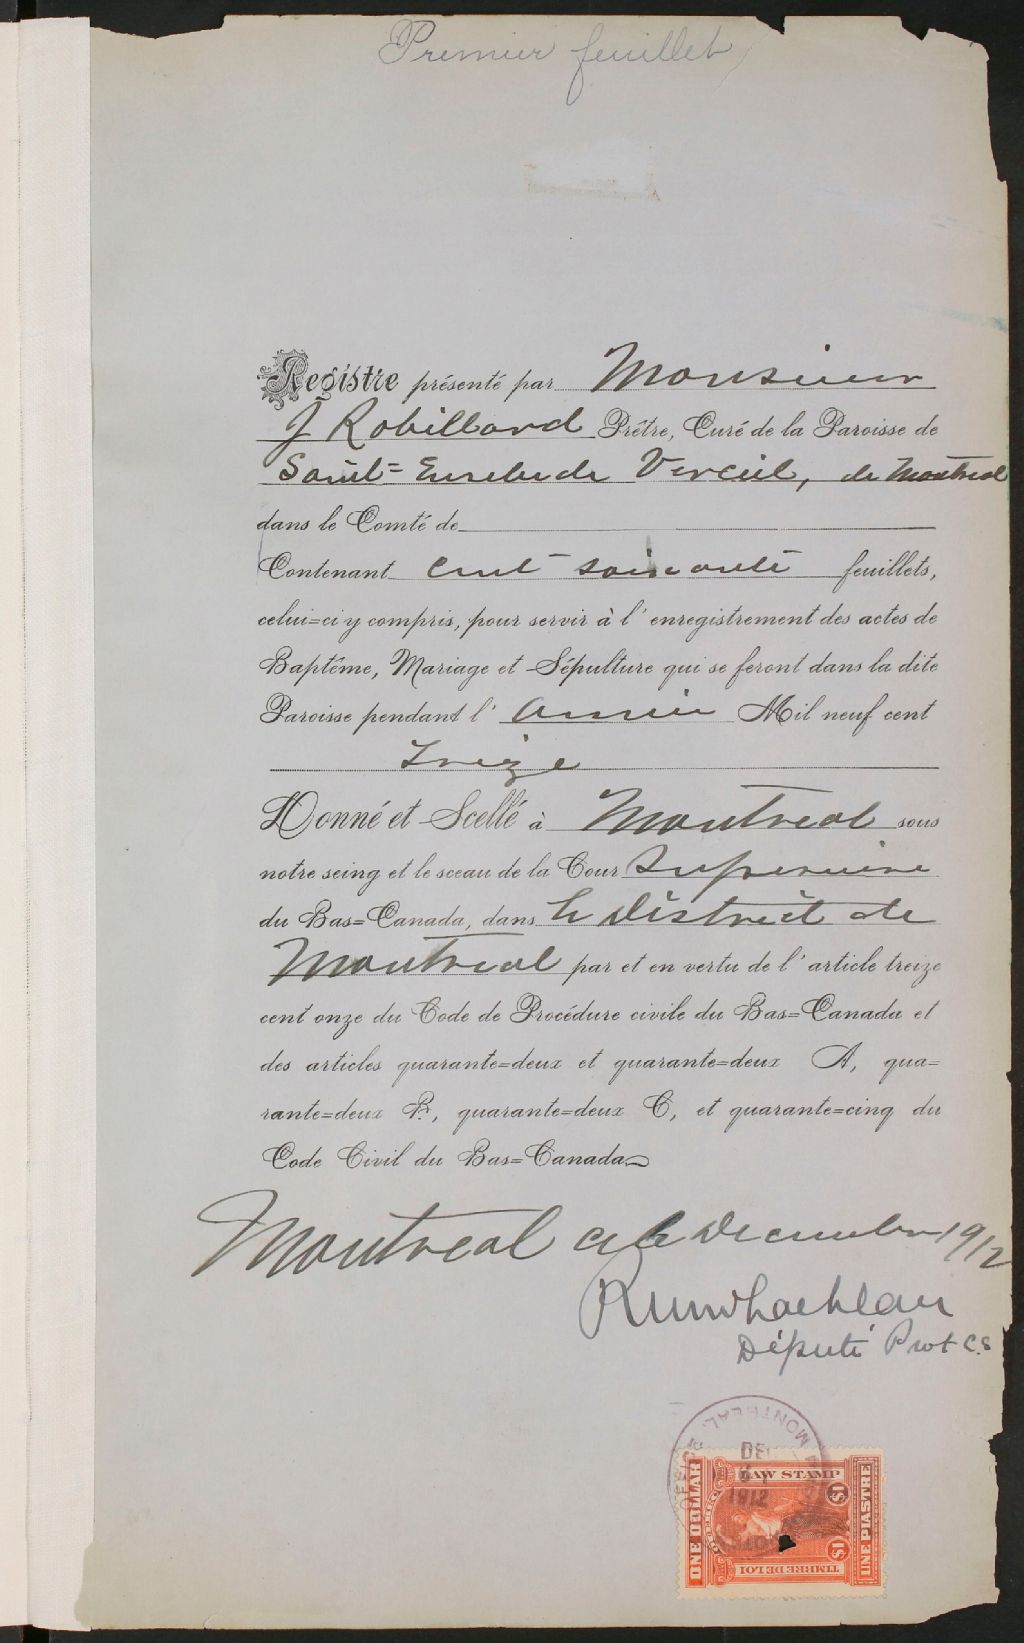 Premier feuillet
Registre présenté par Monsieur
J Robillard Prêtre, Curé de la Paroisse de
Saint=Eusebe de Verceil, de Montreal
dans le Comté de
Contenant Cent soixante feuillets,
celui=ci y compris, pour servir à l'enregistrement des actes de
Baptême, Mariage et Sépulture qui se feront dans la dite
Paroisse pendant l'année Mil neuf cent
Treize
Donné et Scellé à Montreal sous
notre seing et le sceau de la Cour Superieure
du Bas=Canada, dans le District de
Montreal par et en vertu de l'article treize
cent onze du Code de Procédure civile du Bas=Canada et
des articles quarante=deux et quarante=deux A, qua=
rante=deux B, quarante=deux C, et quarante=cinq du
Code Civil du Bas=Canada
Montreal Decembre 1912
Député Prot C.S
MONTREAL
OFFICE
DE
1912
LAW STAMP
ONE DOLLAR
UNE PIASTRE
$1
$1
TIMBRE DE LOI